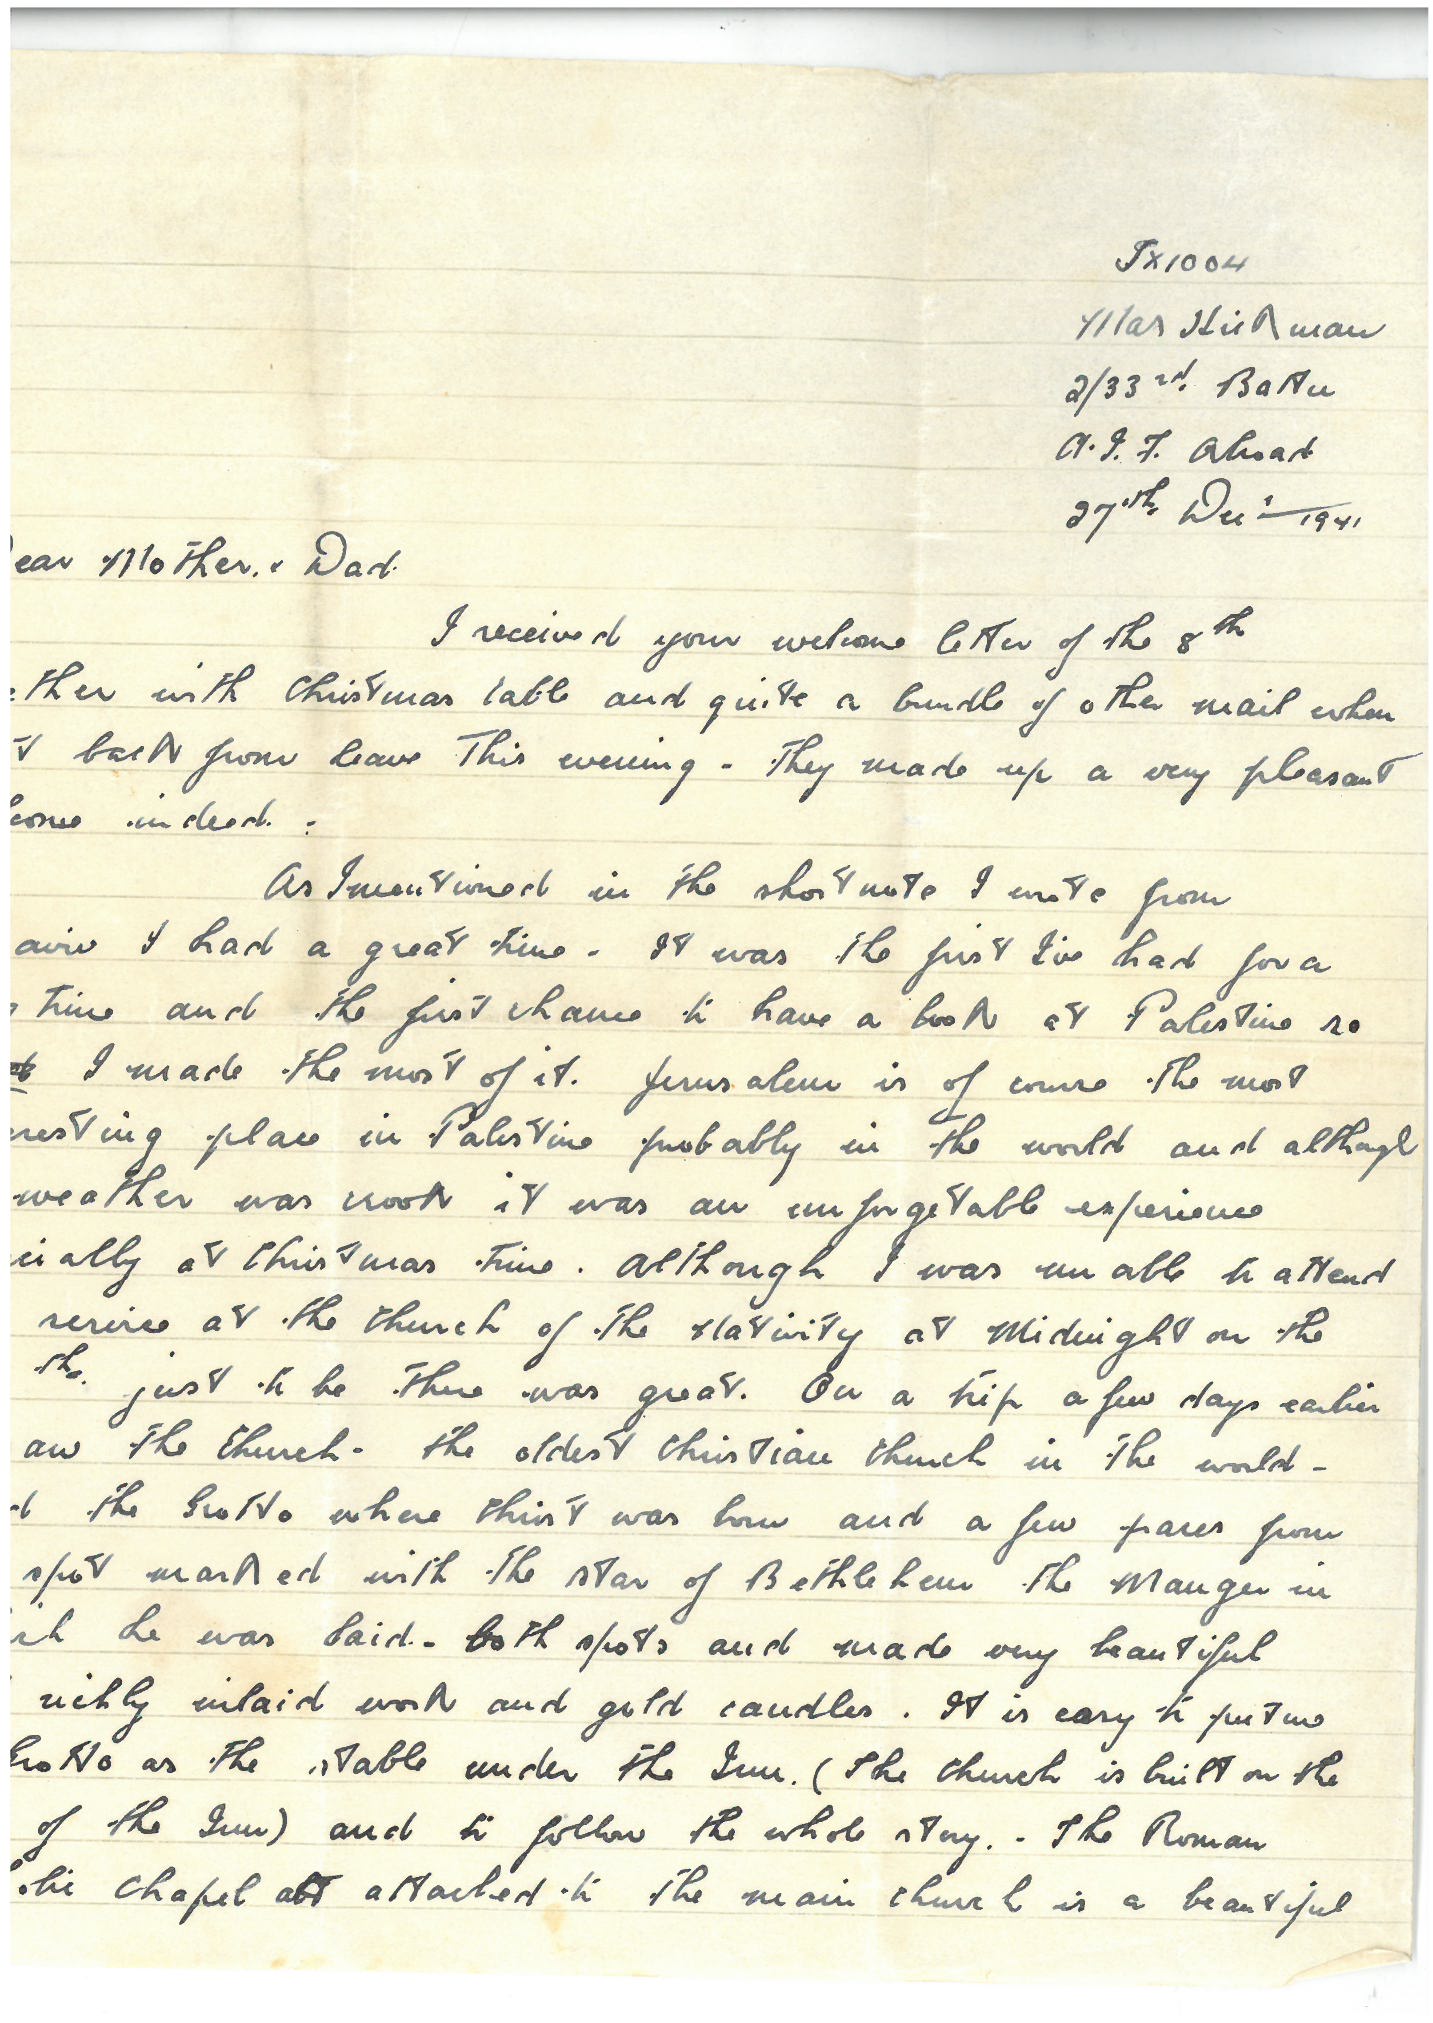 TX1004
Max Hickman
2/33rd. Battn
A.I.F. Abroad
27th Dec 1941
ear Mother. & Dad.
I received your welcome letter of the 8th
ether with Christmas cable and quite a bundle of other mail when
t back from leave this evening - They made up a very pleasant
come indeed.
As I mentioned in the short note I wrote from
aviv I had a great time. It was the first I've had for a
time and the first chance to have a look at Palestine so
I made the most of it. Jerusalem is of course the most
eresting place in Palestine probably in the world and although
weather was crook it was an unforgetable experience
cially at Christmas time. Although I was unable to attend
service at the Church of the Nativity at Midnight on the
th. just to be there was great. On a trip a few days earlier
aw the Church - the oldest Christian Church in the world -
d the Grotto where Christ was born and a few paces from
spot marked with the star of Bethlehem the Manger in
ich he was laid - both spots and made very beautiful
richly inlaid work and gold candles. It is easy to picture
Grotto as the stable under the Inn. (The Church is built on the
of the Inn) and to follow the whole story. - The Roman
olic Chapel att attached to the main church is a beautiful